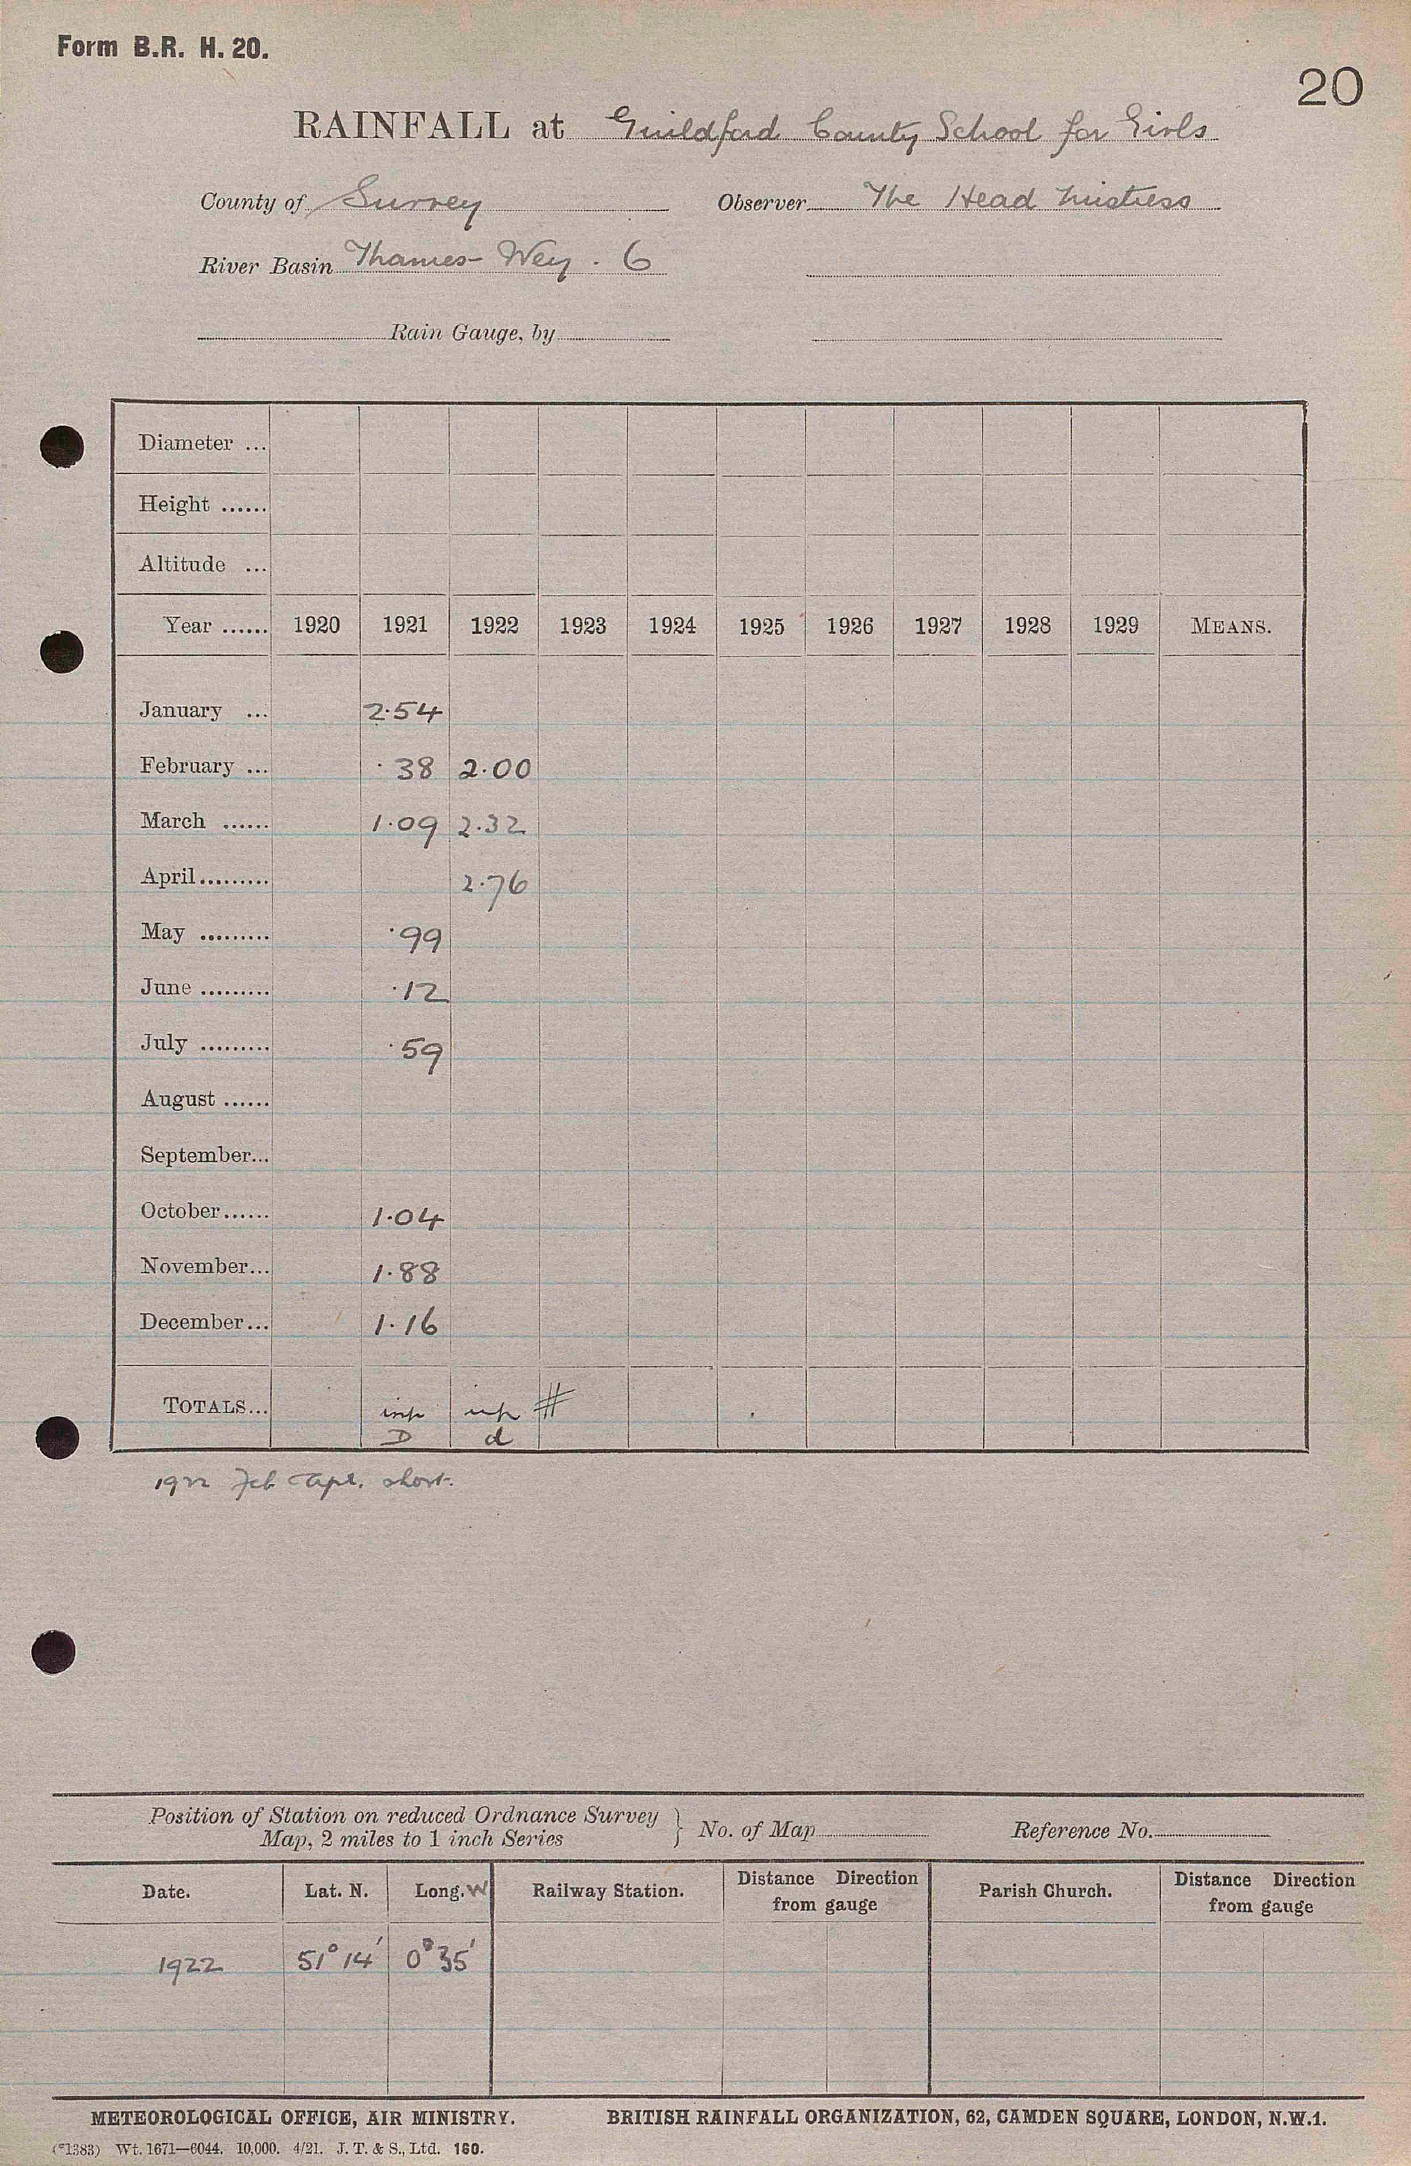 Form B.R. H. 20.
20
RAINFALL at Guildford County School for Girls
County of Surrey Observer The Head Mistress
River Basin Thames - Wey . 6
Rain Gauge, by
Diameter ...
Height ......
Altitude ...
Year ...... 1920 1921 1922 1923 1924 1925 1926 1927 1928 1929 MEANS.
January ... 2.54
February ... .38 2.00
March ...... 1.09 2.32
April......... 2.76
May ......... .99
June ......... .12
July ......... .59
August ......
September...
October...... 1.04
November... 1.88
December... 1.16
TOTALS... inp inp #
D d
1922 Feb Apl. short.
Position of Station on reduced Ordnance Survey
Map, 2 miles to 1 inch Series } No. of Map Reference No.
Date. Lat. N. Long. W Railway Station. Distance Direction from gauge Parish Church. Distance Direction from gauge
1922 51° 14' 0° 35'
METEOROLOGICAL OFFICE, AIR MINISTRY. BRITISH RAINFALL ORGANIZATION, 62, CAMDEN SQUARE, LONDON, N.W.1.
(*1383) Wt. 1671—6044. 10,000. 4/21. J. T. & S., Ltd. 160.